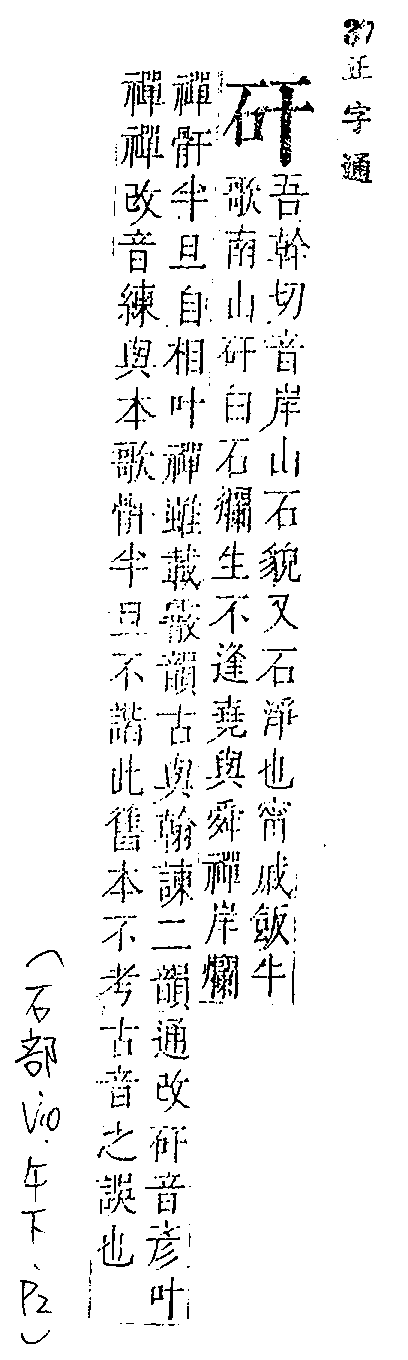 37 正字通
矸
吾幹切音岸山石貌又石淨也甯戚飯牛
歌南山矸白石爛生不逢堯與舜禪岸爛
禪骭半旦自相叶禪雖載霰韻古與翰諫二韻通改矸音彦叶
禪禪改音練與本歌骭半旦不諧此舊本不考古音之誤也
(石部 V10.午下.P2)